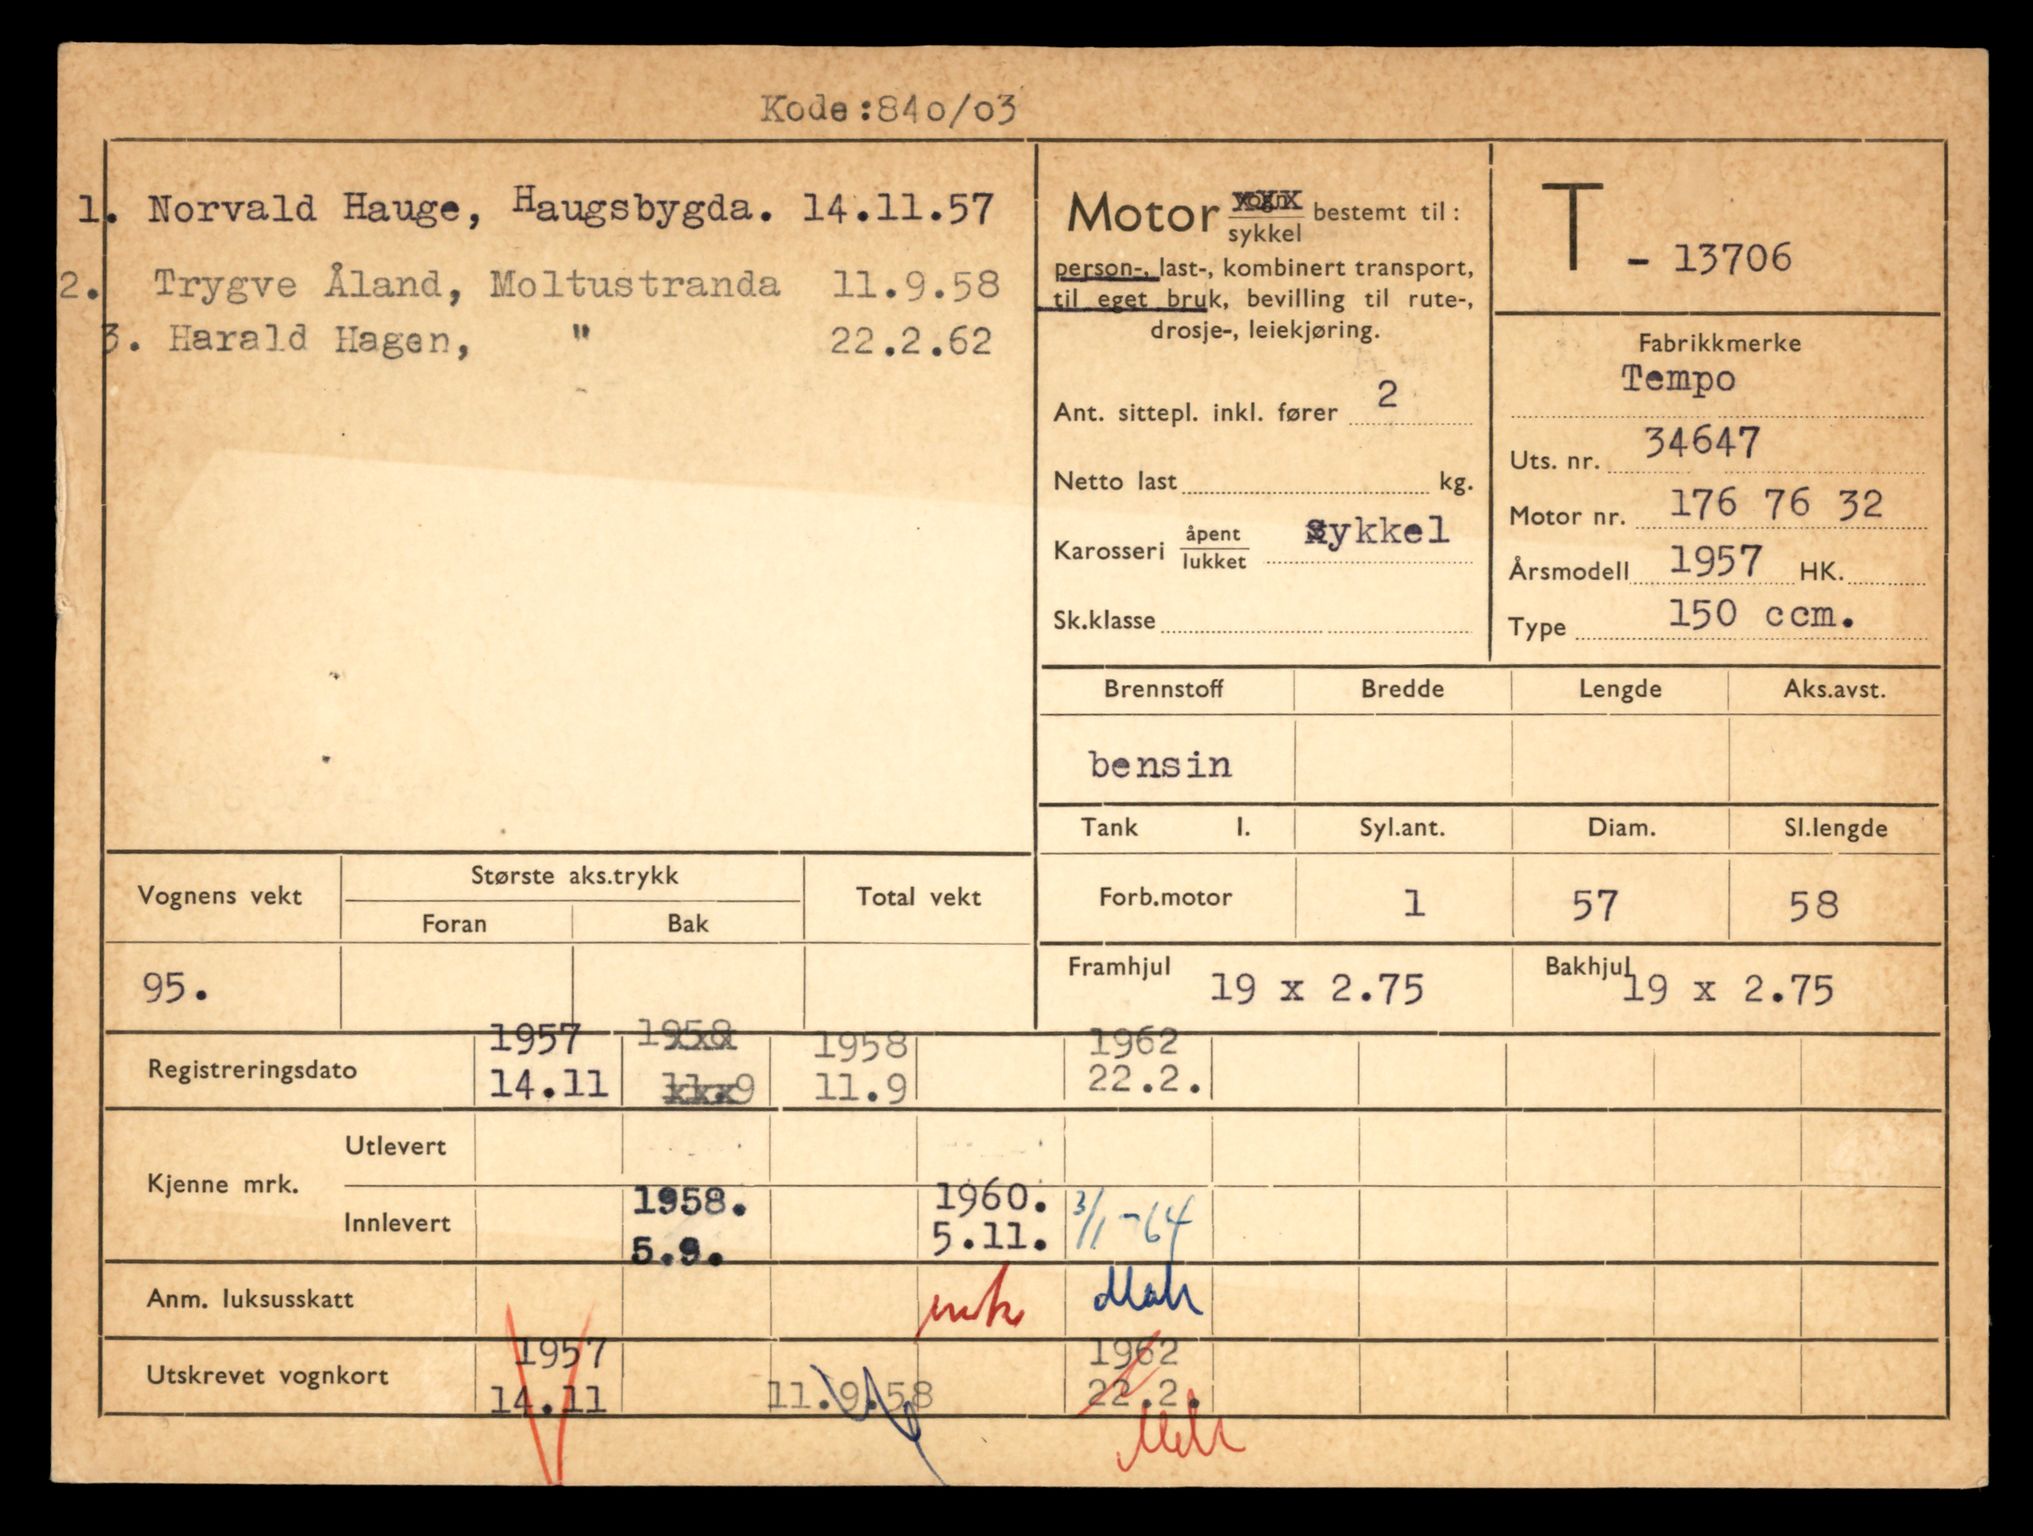 Kode:840/03
1. Norvald Hauge, Haugsbygda. 14.11.57
2. Trygve Åland, Moltustranda 11.9.58
3. Harald Hagen, " 22.2.62
Motor vogn/sykkel bestemt til:
person-, last-, kombinert transport,
til eget bruk, bevilling til rute-,
drosje-, leiekjøring.
Ant. sittepl. inkl. fører 2
Netto last kg.
Karosseri åpent/lukket sykkel
Sk.klasse
T - 13706
Fabrikkmerke
Tempo
Uts. nr. 34647
Motor nr. 176 76 32
Årsmodell 1957 HK.
Type 150 ccm.
Brennstoff Bredde Lengde Aks.avst.
bensin
Tank l. Syl.ant. Diam. Sl.lengde
Forb.motor 1 57 58
Framhjul 19 x 2.75 Bakhjul 19 x 2.75
Vognens vekt Største aks.trykk Total vekt
Foran Bak
95.
1957 1958 1958 1962
Registreringsdato
14.11 11.9 11.9 22.2.
Utlevert
Kjenne mrk.
Innlevert
1958. 1960. 3/1-64
5.9. 5.11.
Anm. luksusskatt
1957 1962
Utskrevet vognkort
14.11 11.9.58 22.2.